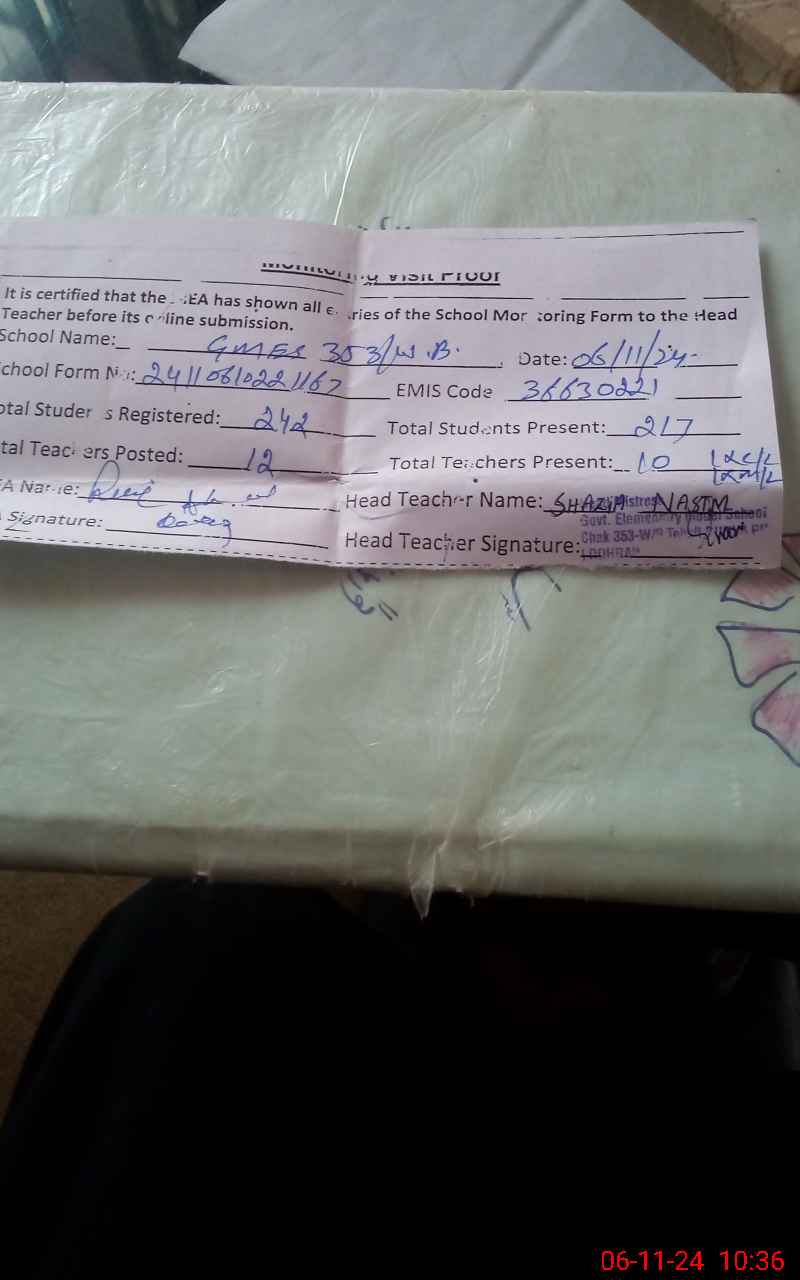 Monitoring Visit Proof
It is certified that the EA has shown all e ries of the School Mor toring Form to the Head
Teacher before its o line submission.
School Name: GMES 353/W.B. Date: 06/11/24
chool Form No: 241106102211 EMIS Code 36630221
otal Studer s Registered: 242 Total Students Present: 217
tal Teac ers Posted: 12 Total Teachers Present: 10 1xc/L
1xM/L
EA Name: Head Teacher Name: SHAZIA NASIM
Signature: Head Teacher Signature:
mistress
Govt. Elementary Model School
Chak 353-W/B
LODHRAN
06-11-24 10:36